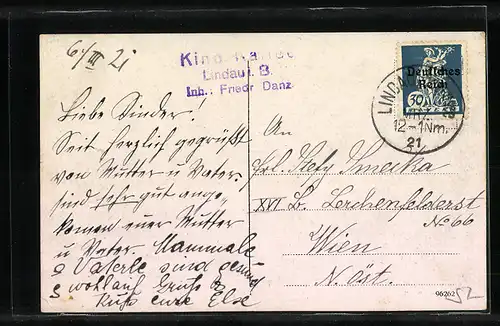 6/III 21
Kino Kaffee
Lindau i. B.
Inh.: Friedr Danz
Deutsches
Reich
30
LINDAU
12-1Nm.
21
Liebe Kinder!
Seit herzlich gegrüßt
von Mutter u Vater.
sind sehr gut ange-
komen euer Mutter
u Vater. Mammale
u Vaterle sind gesund
u wohlauf Gruß u
Kuß eure Else
An
Frl. Smecka
XVI B. Lerchenfelderst
No 66
Wien
N. Öst.
96262